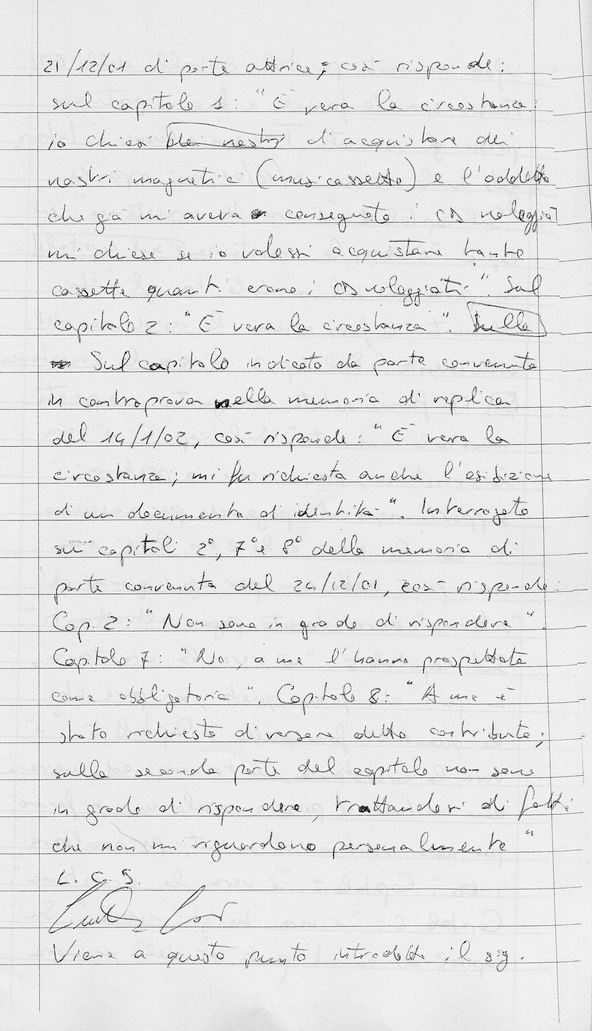 21/12/01 di parte attrice; così risponde:
sul capitolo 1: "È vera la circostanza:
io chiesi dei nastri d'acquistare dei
nastri magnetici (musicassette) e l'addetto
che già mi aveva consegnato i CD noleggiati
mi chiese se io volessi acquistare tante
cassette quanti erano i CD noleggiati". Sul
capitolo 2: "È vera la circostanza". Sulla
Sul capitolo indicato da parte convenuta
in controprova nella memoria di replica
del 14/1/02, così risponde: "È vera la
circostanza; mi fu richiesta anche l'esibizione
di un documento di identità". Interrogato
sui capitoli 2°, 7° e 8° della memoria di
parte convenuta del 24/12/01, così risponde:
Cap. 2: "Non sono in grado di rispondere".
Capitolo 7: "No, a me l'hanno prospettata
come obbligatoria". Capitolo 8: "A me è
stato richiesto di versare detto contributo;
sulla seconda parte del capitolo non sono
in grado di rispondere, trattandosi di fatti
che non mi riguardano personalmente"
L. C. S.
Viene a questo punto introdotto il sig.